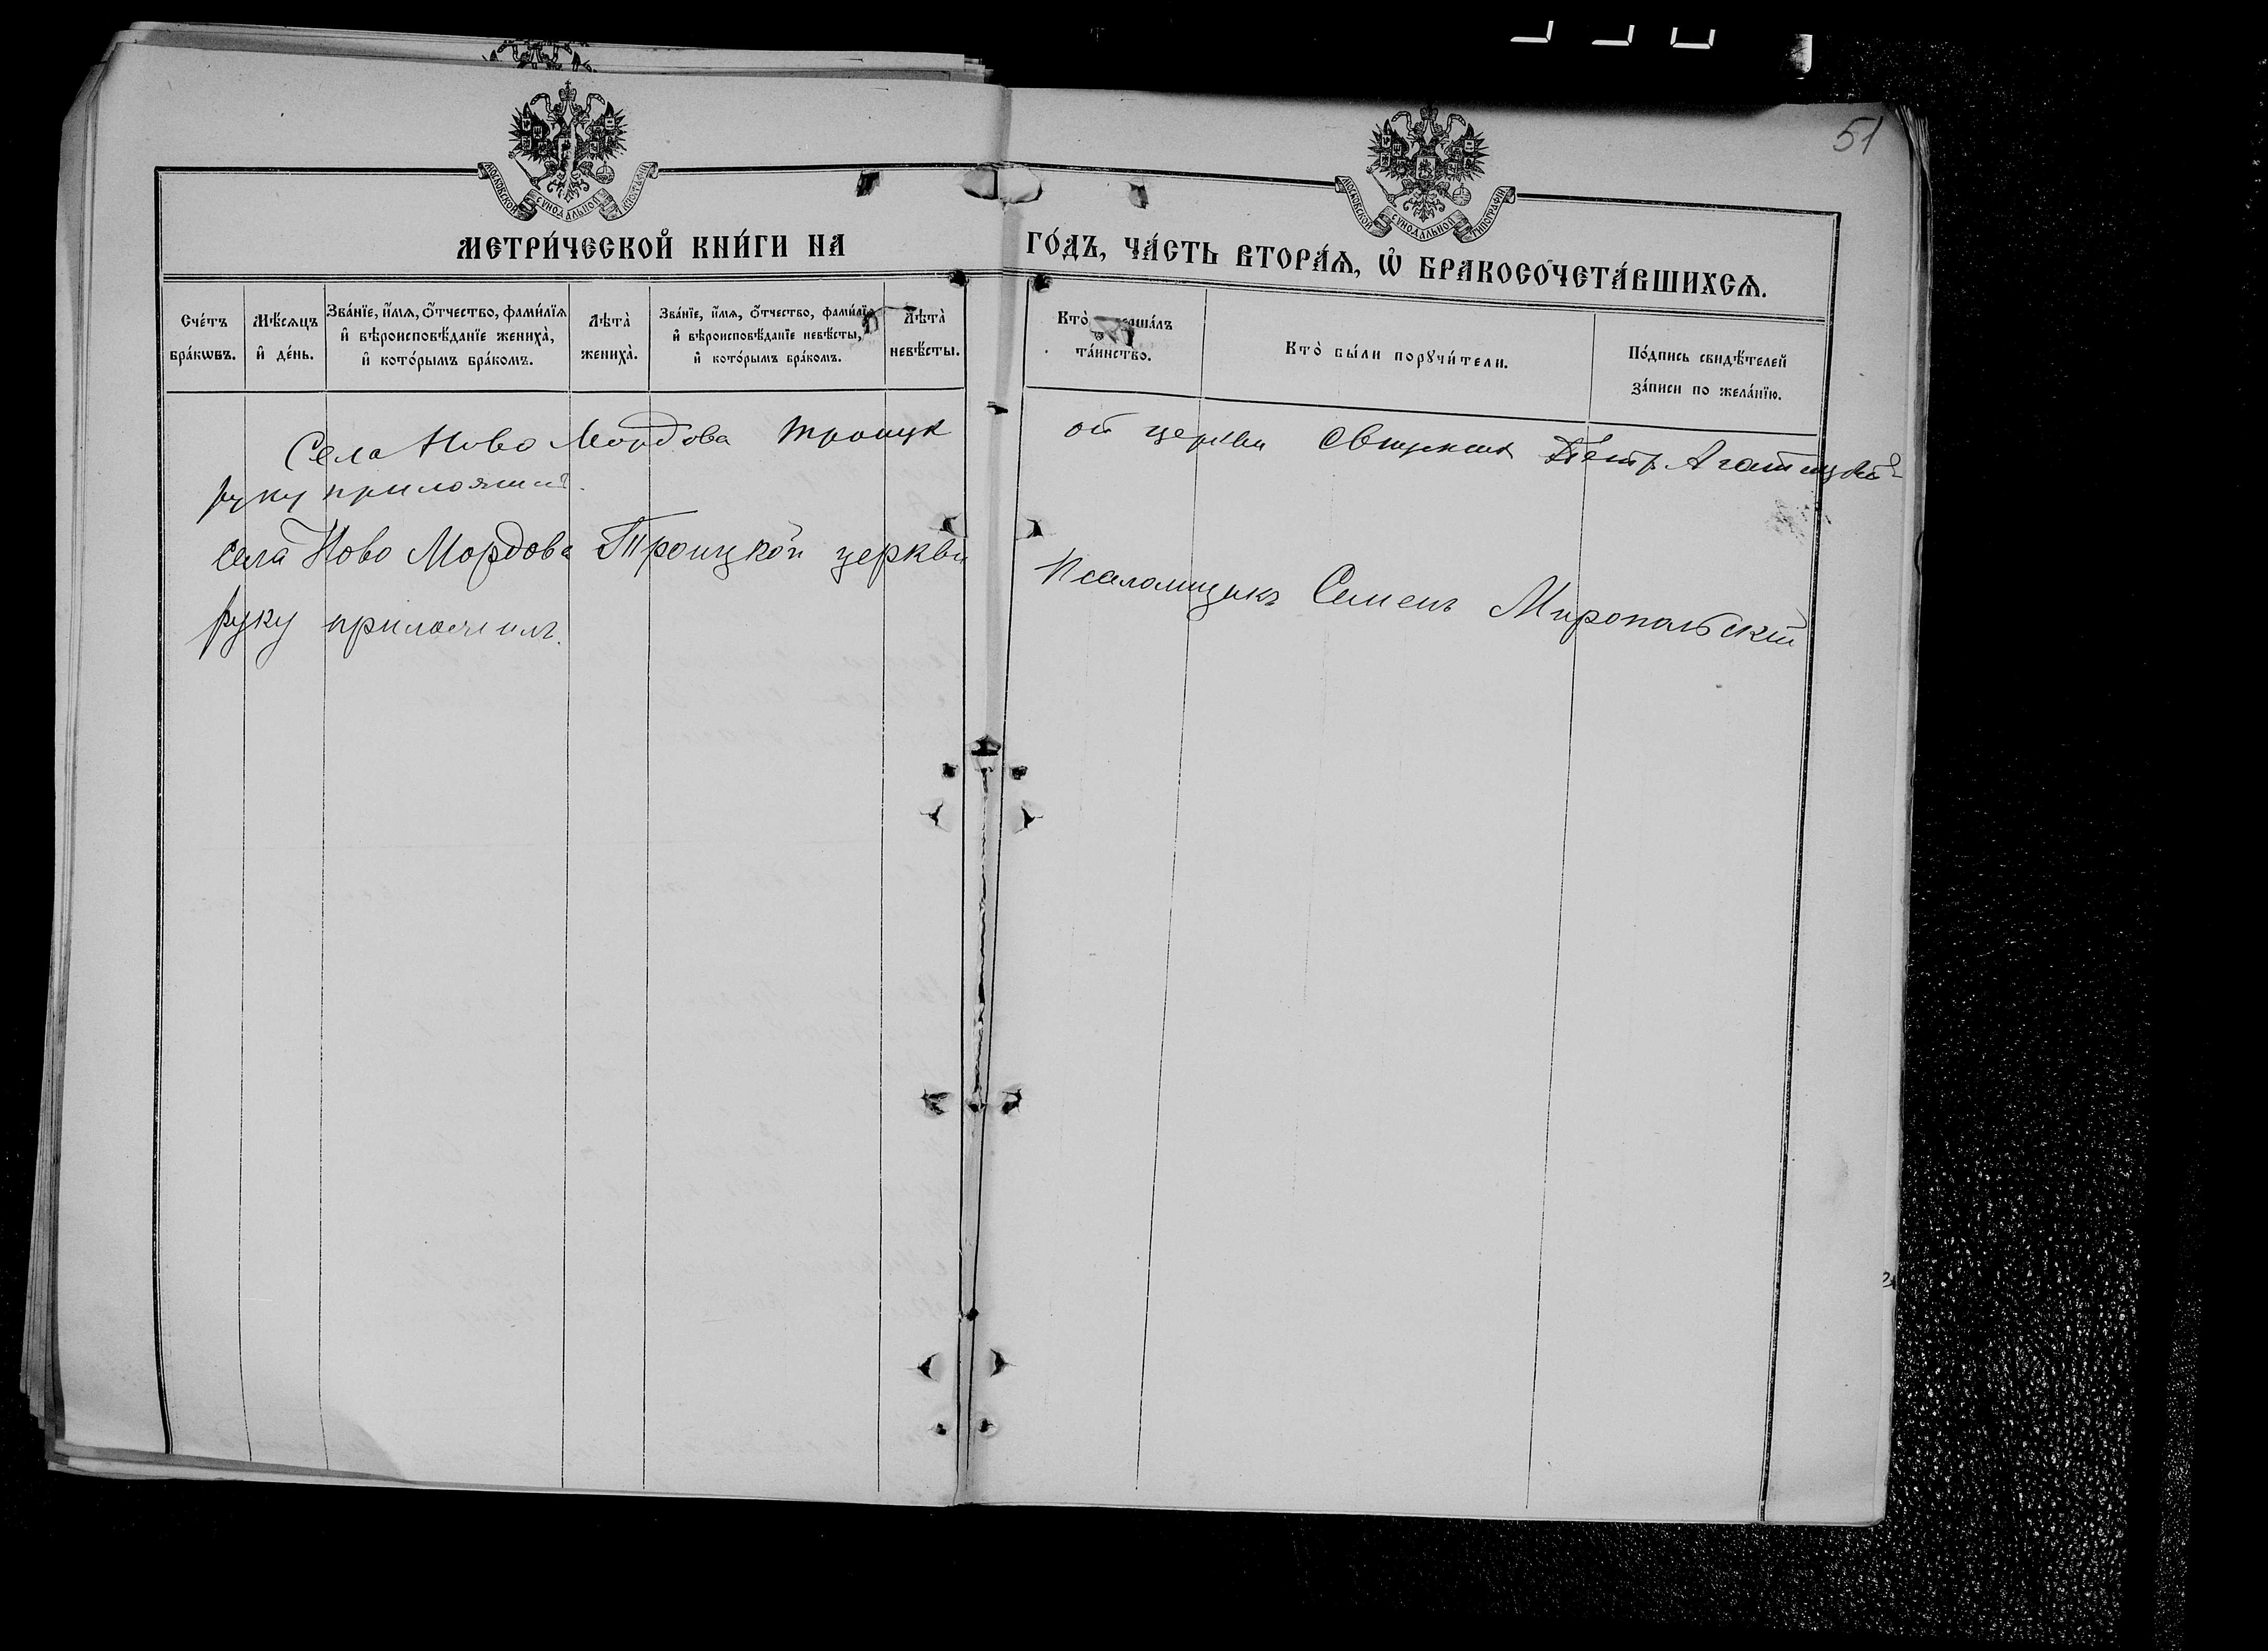 51
МОСКОВСКОЙ СУНОДАЛЬНОЙ ТИПОГРАФІИ
МОСКОВСКОЙ СУНОДАЛЬНОЙ ТИПОГРАФІИ
МЕТРИ́ЧЕСКОЙ КНИ́ГИ НА ГО́ДЪ, ЧА́СТЬ ВТОРА́Я, Ѡ БРАКОСОЧЕТА́ВШИХСЯ.
Сче́тъ бра́кѡвъ.
Мѣ́сяцъ и де́нь.
Зва́нїе, и́мя, ѻ́тчество, фами́лїя
и вѣроисповѣ́данїе жениха̀,
и кото́рымъ бра́комъ.
Лѣта̀ жениха̀.
Зва́нїе, и́мя, ѻ́тчество, фами́лїя
и вѣроисповѣ́данїе невѣ́сты,
и кото́рымъ бра́комъ.
Лѣта̀ невѣ́сты.
Кто̀
та́инство.
Кто̀ бы́ли порꙋчи́тели.
По́дпись свидѣ́телей
за́писи по жела́нїю.
Села Ново Мордова Троицк ой церкви Петр
руку
села Ново Мордова Троицкой церкви Псаломщикъ Семенъ Миропольскій
руку приложилъ.